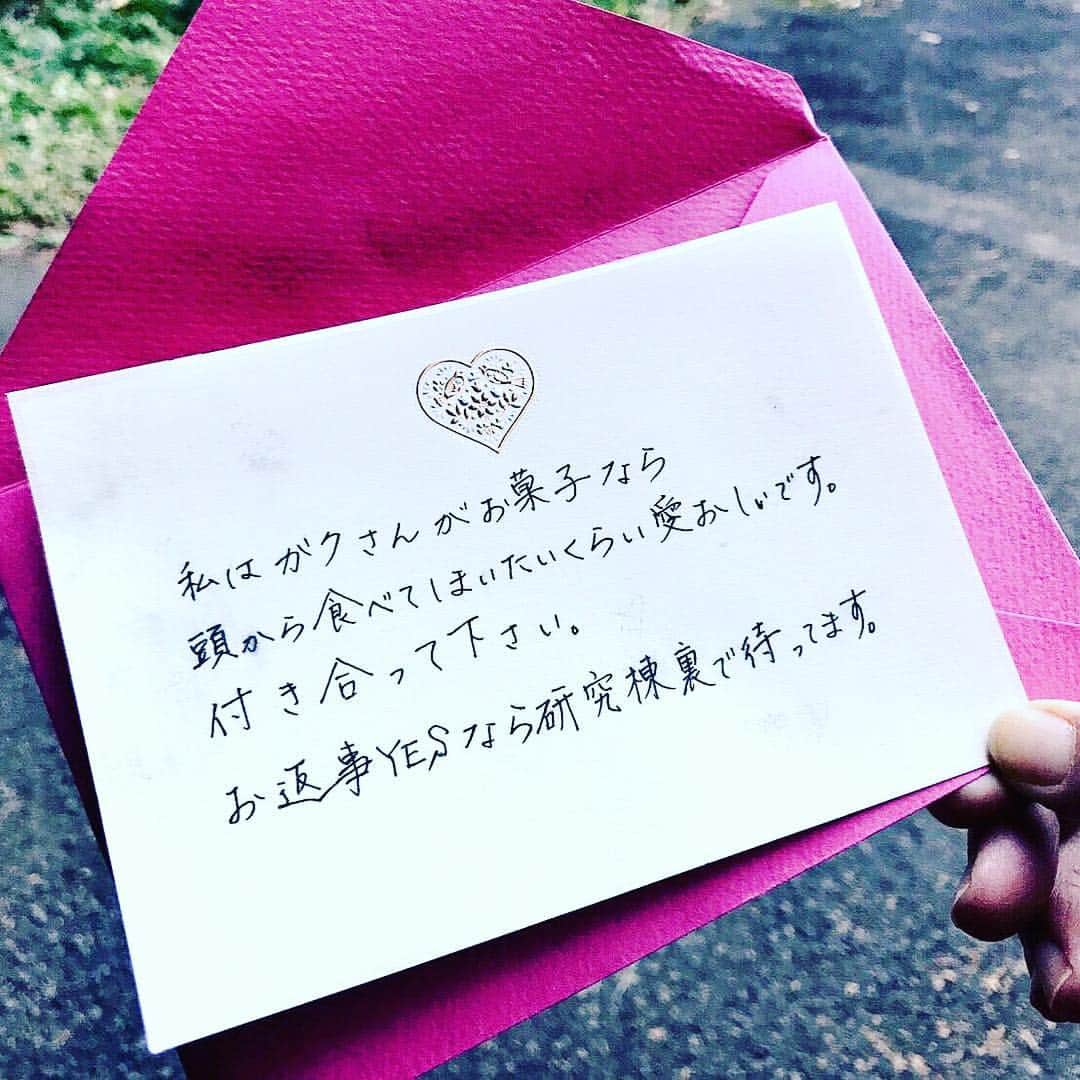 私はガクさんがお菓子なら
頭から食べてしまいたいくらい愛おしいです。
付き合って下さい。
お返事YESなら研究棟裏で待ってます。